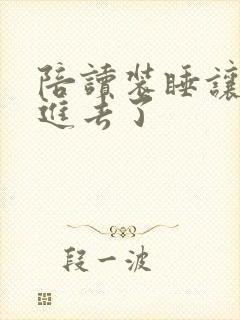 陪讀裝睡讓
進去了
段一波